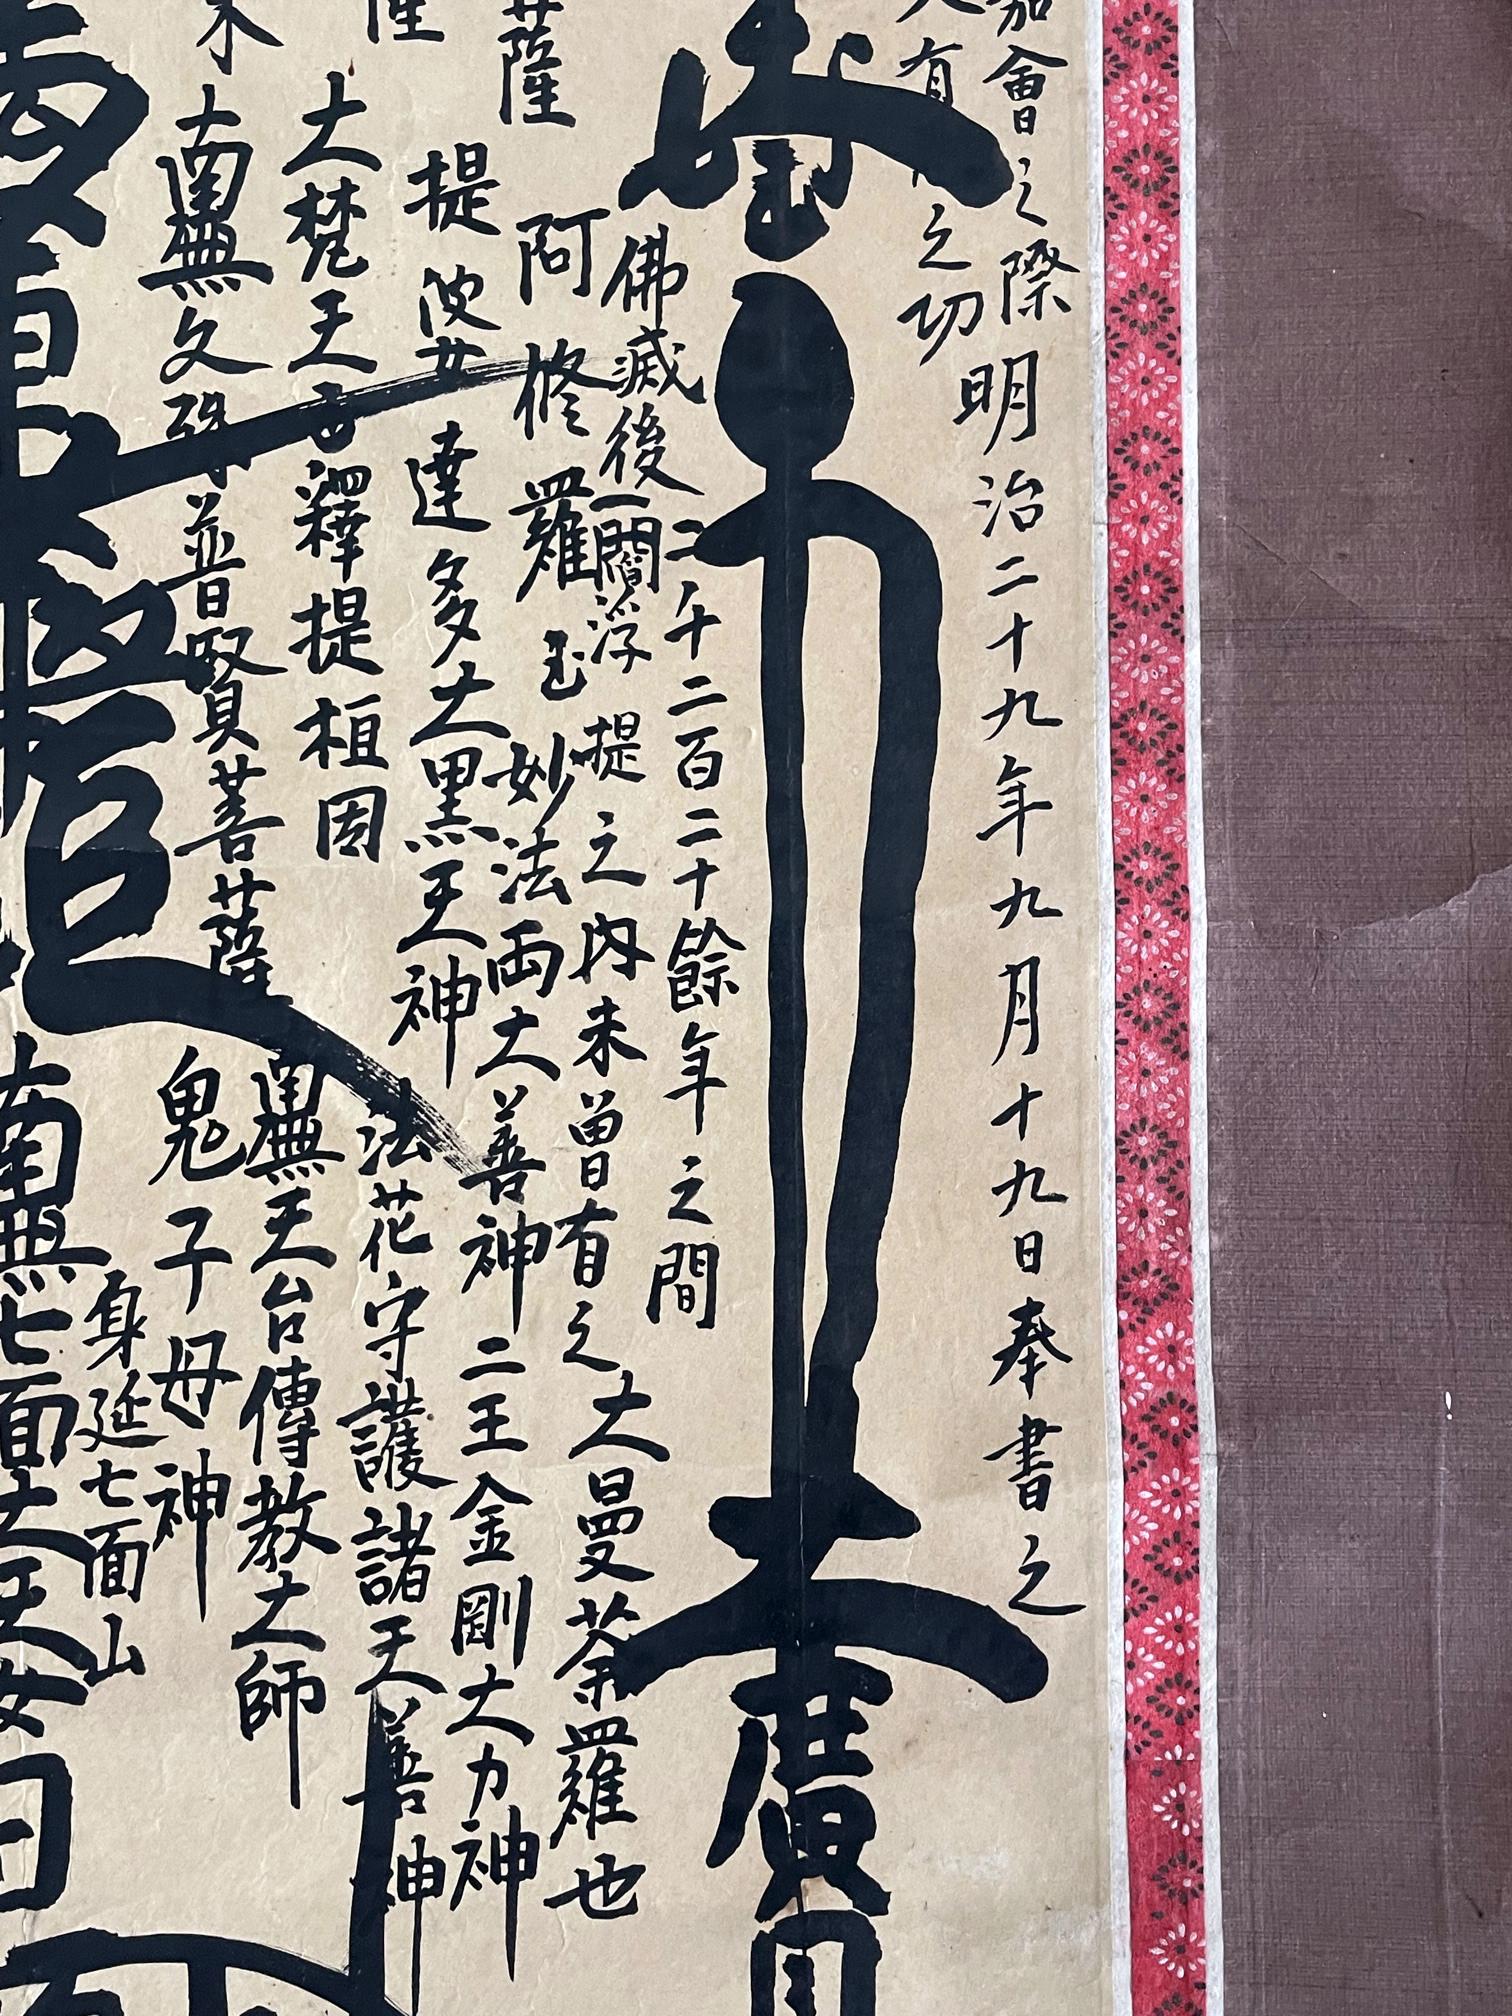 嘉會之際明治二十九年九月十九日奉書之
有
之功
廣目
佛滅後二千二百二十餘年之間
一閻浮提之内未曽有之大曼荼羅也
菩薩
阿修羅王
妙法両大善神
二王金剛大力神
提婆達多
大黒天神
法花守護諸天善神
大梵天王
釋提桓因
南無天台傳教大師
南無文殊普賢菩薩
鬼子母神
身延七面山
南無七面大天女